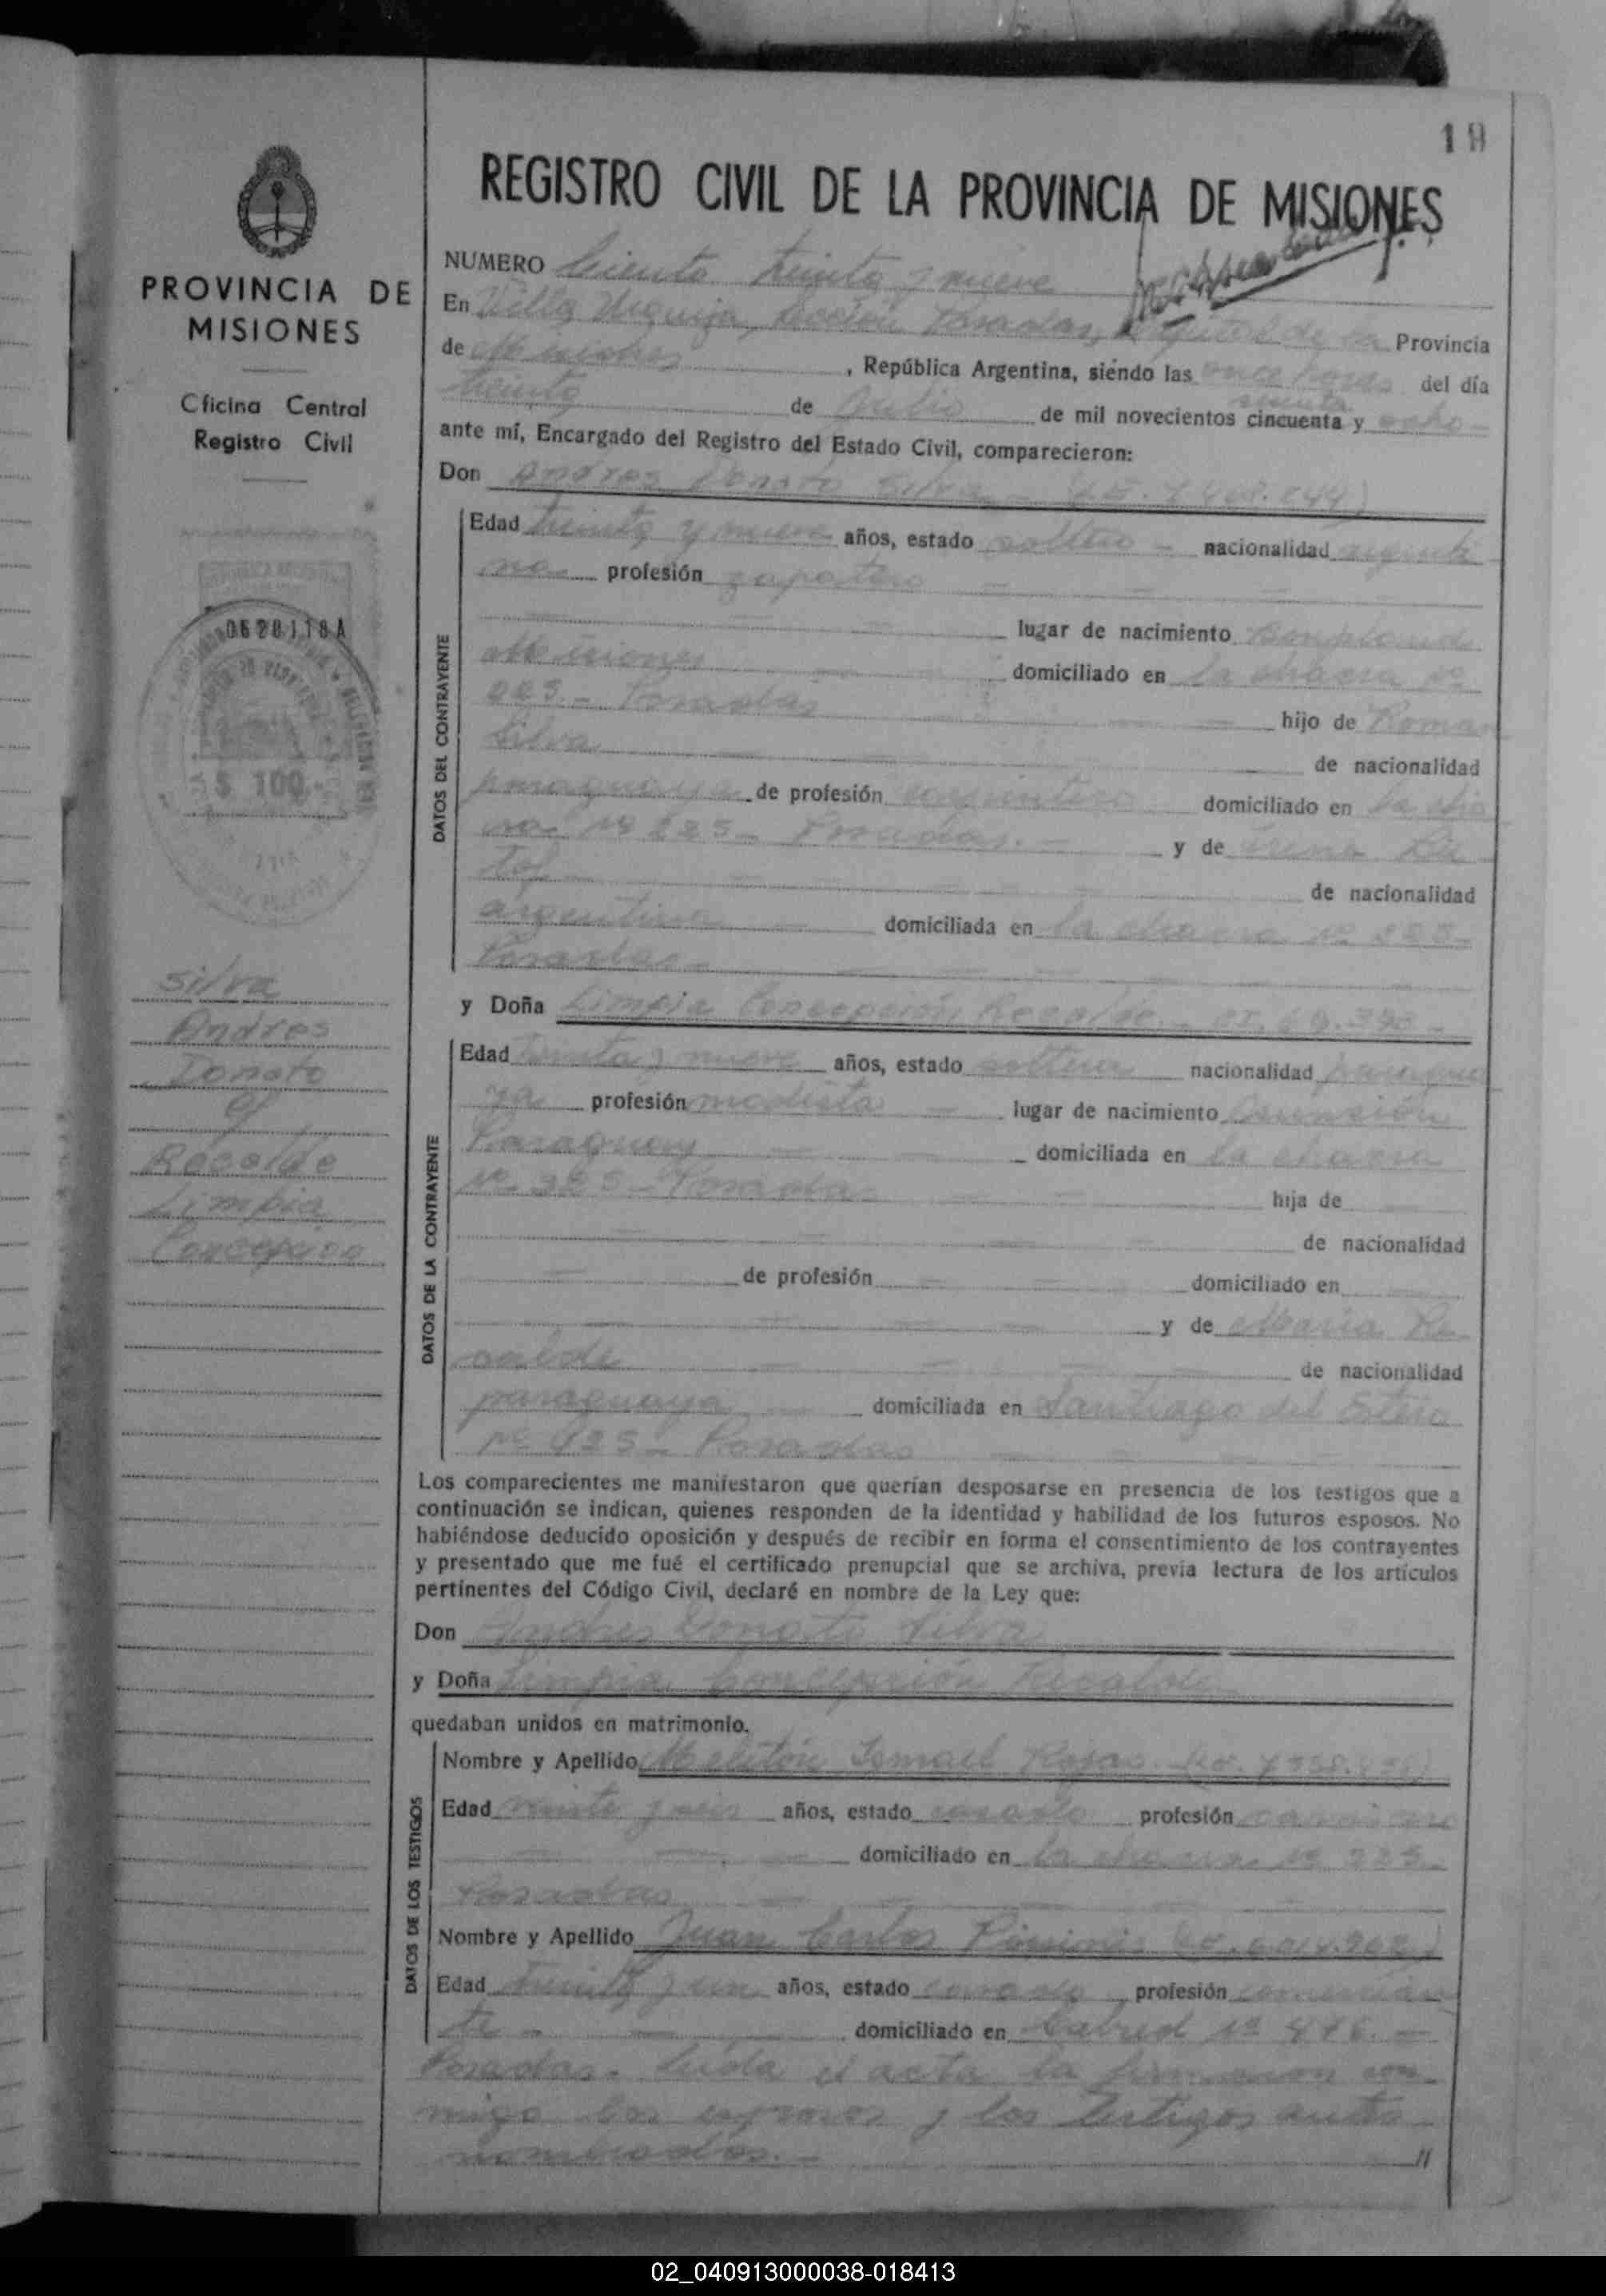 18
REGISTRO CIVIL DE LA PROVINCIA DE MISIONES
PROVINCIA DE
MISIONES
Oficina Central
Registro Civil
0628118A
$ 100.-
Silva
Andres
Donato
y
Recalde
Limpia
Concepción
NUMERO Ciento treinta y nueve
En Villa Urquiza, Sección Posadas, Capital de la Provincia
de Misiones, República Argentina, siendo las once horas del día
treinta de Julio de mil novecientos cincuenta y ocho
sesenta
ante mí, Encargado del Registro del Estado Civil, comparecieron:
Don Andres Donato Silva
DATOS DEL CONTRAYENTE
Edad treinta y nueve años, estado soltero - nacionalidad argenti
na profesión zapatero
lugar de nacimiento Bonpland
Misiones domiciliado en la chacra Nº
225.- Posadas hijo de Roman
Silva de nacionalidad
paraguaya de profesión carpintero domiciliado en la cha
cra Nº 225 - Posadas.- y de Irene
de nacionalidad
argentina domiciliada en la chacra Nº 225-
Posadas-
y Doña Limpia Concepción Recalde.-
DATOS DE LA CONTRAYENTE
Edad treinta y nueve años, estado soltera nacionalidad paragua
ya profesión modista - lugar de nacimiento Asunción
Paraguay domiciliada en la chacra
Nº 225 - Posadas hija de
de nacionalidad
de profesión domiciliado en
y de María Re
calde de nacionalidad
paraguaya domiciliada en Santiago del Estero
Nº 425 - Posadas
Los comparecientes me manifestaron que querían desposarse en presencia de los testigos que a
continuación se indican, quienes responden de la identidad y habilidad de los futuros esposos. No
habiéndose deducido oposición y después de recibir en forma el consentimiento de los contrayentes
y presentado que me fué el certificado prenupcial que se archiva, previa lectura de los artículos
pertinentes del Código Civil, declaré en nombre de la Ley que:
Don Andres Donato Silva
y Doña Limpia Concepción Recalde
quedaban unidos en matrimonio.
DATOS DE LOS TESTIGOS
Nombre y Apellido Melitón Ismael Rojas
Edad veinte y seis años, estado casado profesión carnicero
domiciliado en la chacra Nº 225-
Posadas
Nombre y Apellido Juan Carlos
Edad treinta y un años, estado casado profesión comercian
te - domiciliado en Cabred Nº 416.-
Posadas. Leída el acta la firmaron con-
migo los esposos y los testigos ante
nombrados.- //
02_040913000038-018413